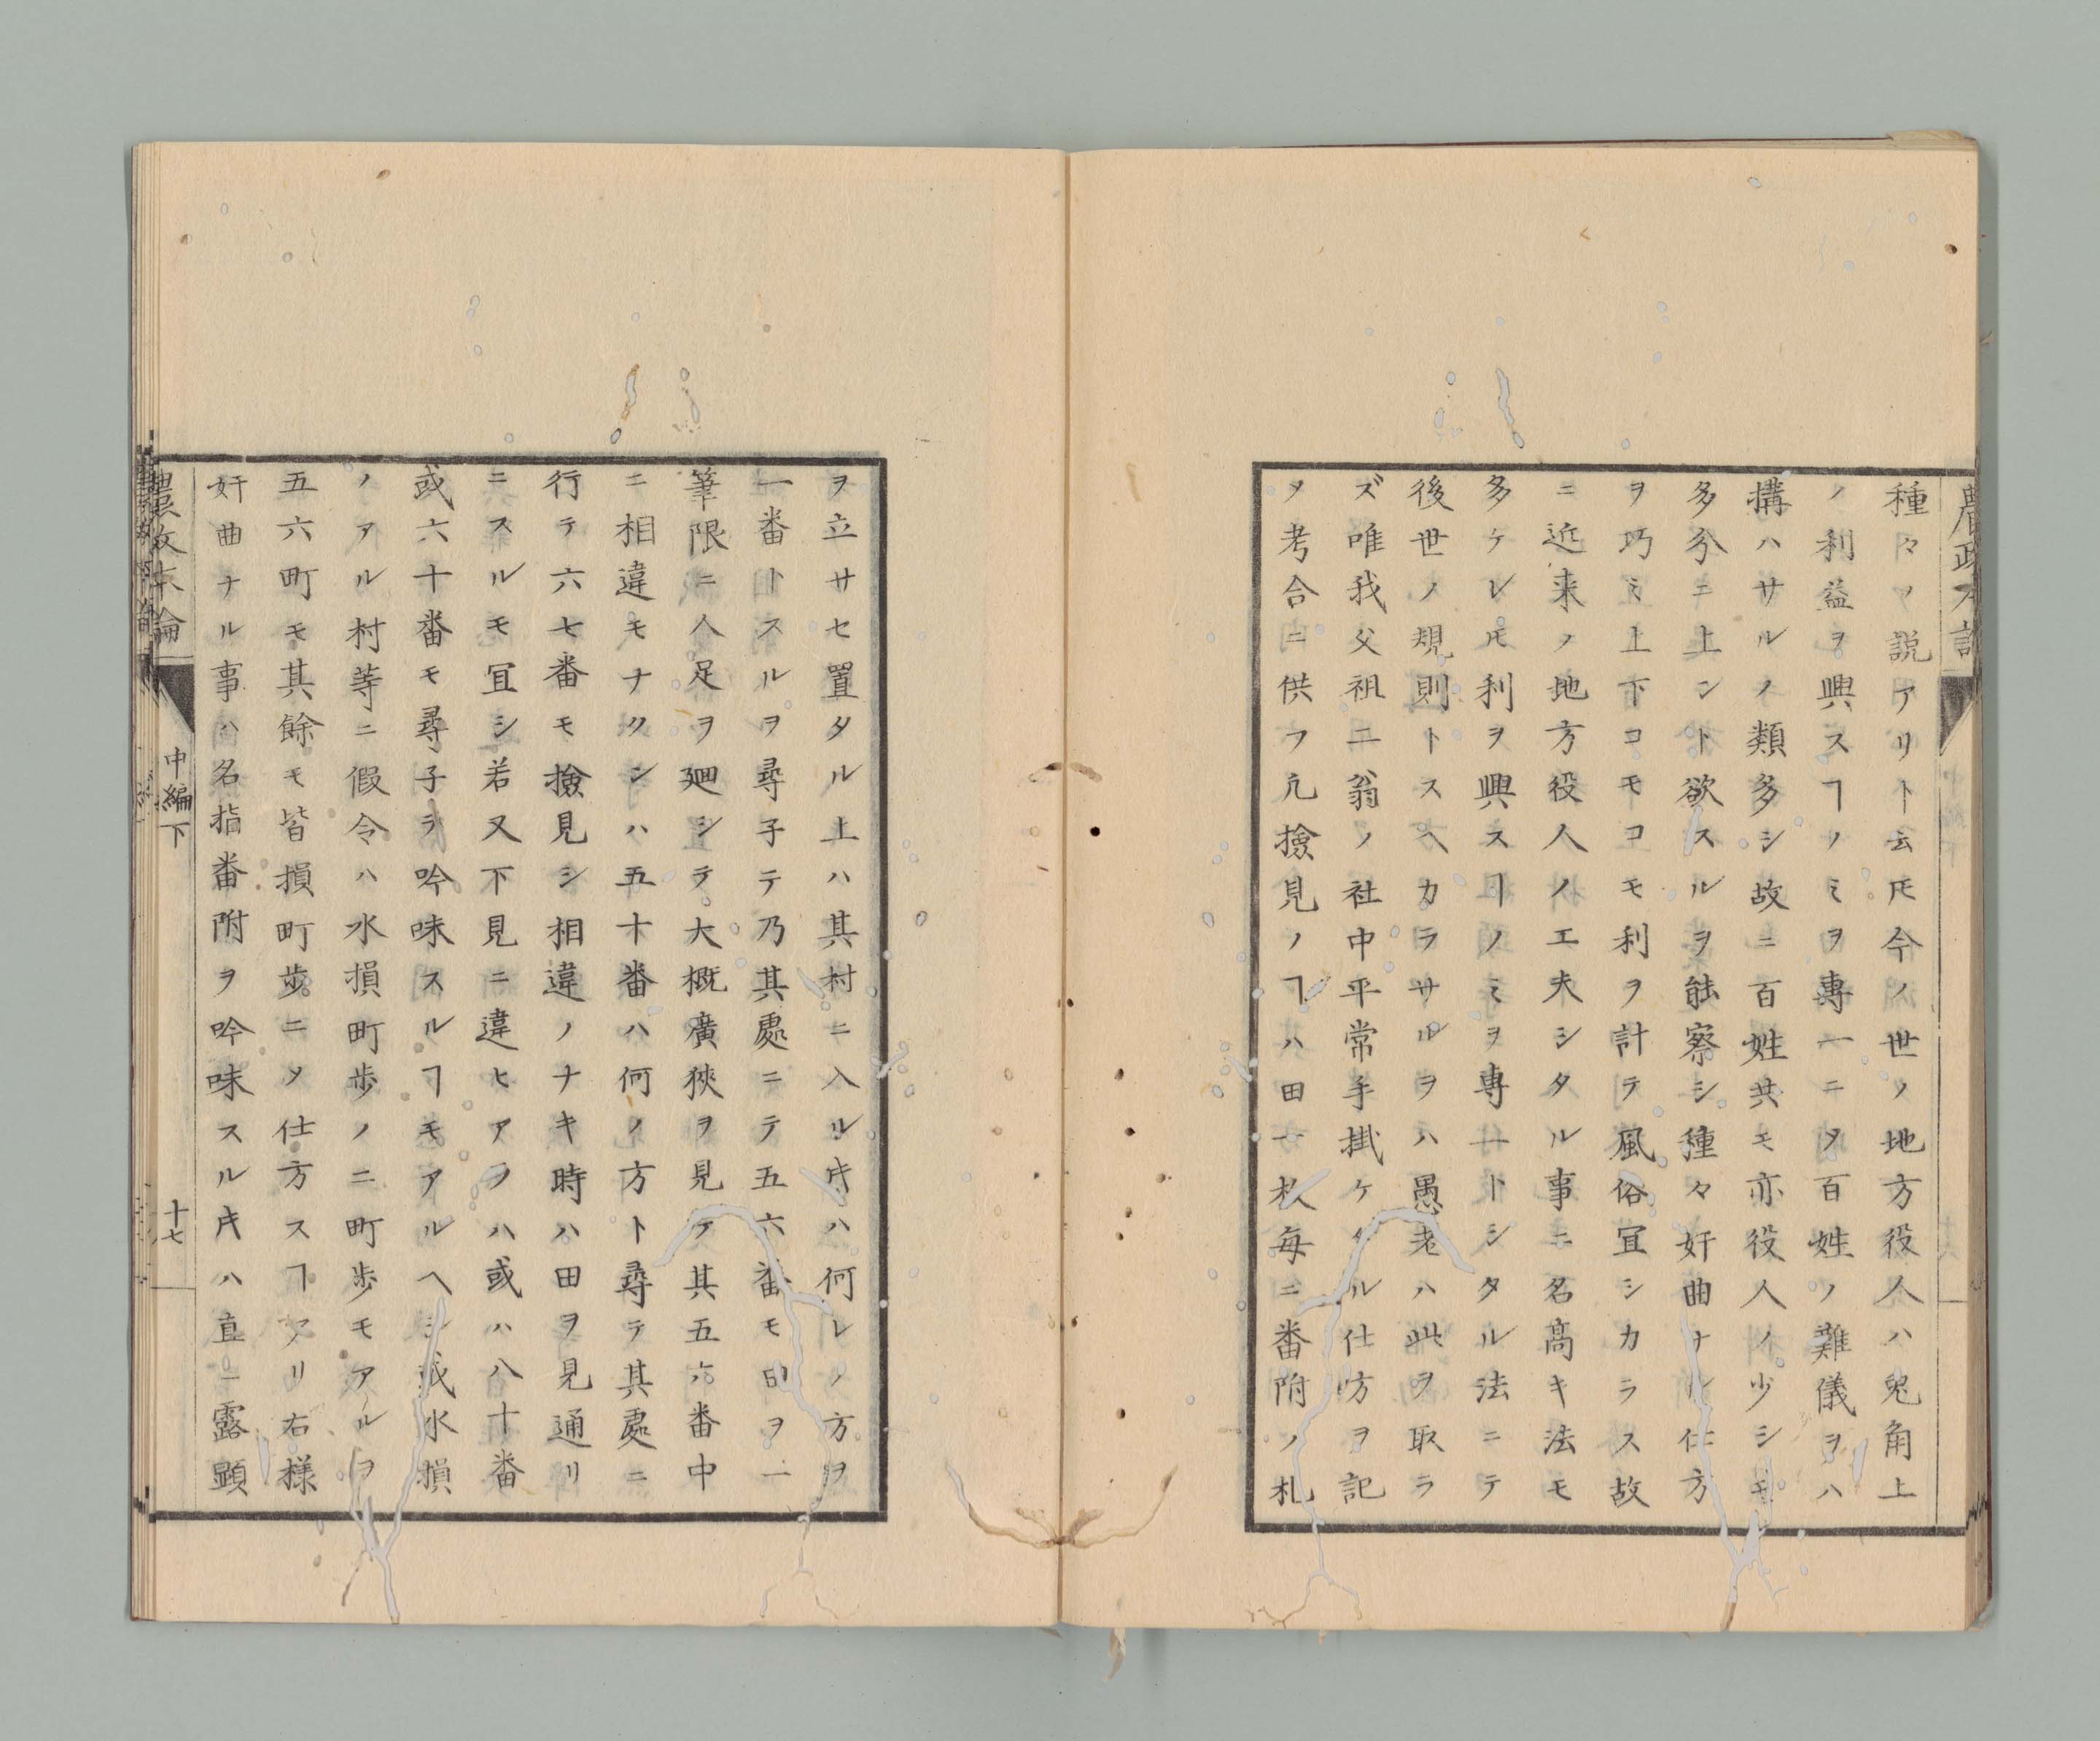 種々ノ説アリト云𪜈今ノ世ノ地方役人ハ兎角上
ノ利益ヲ興スヿノミヲ專一ニ〆百姓ノ難儀ヲハ
搆ハサルノ類多シ故ニ百姓共モ亦役人ノ少シモ
多分ニ上ント欲スルヲ能察シ種々奸曲ナル仕方
ヲ巧ミ上下コモコモ利ヲ計テ風俗宜シカラス故
ニ近来ノ地方役人ノ工夫シタル事ニ名高キ法モ
多ケレ𪜈利ヲ興スヿノミヲ専一トシタル法ニテ
後世ノ規則トスヘカラサルヲハ愚老ハ此ヲ取ラ
ズ唯我父祖二翁ノ社中平常手掛ケタル仕方ヲ記
〆考合ニ供フ凢撿見ノヿハ田一枚毎ニ番附ノ札
ヲ立サセ置タル上ハ其村ニ入ル𪜈ハ何レノ方ヲ
一番トスルヲ尋子テ乃其處ニテ五六番モ印ヲ一
筆限ニ人足ヲ廻シテ大概廣狹ヲ見テ其五六番中
ニ相違モナクンハ五十番ハ何ノ方ト尋テ其處ニ
行テ六七番モ撿見シ相違ノナキ時ハ田ヲ見通リ
ニスルモ宜シ若又下見ニ違ヒアラハ或ハ八十番
或六十番モ尋子テ吟味スルヿモアルヘシ或水損
ノアル村等ニ假令ハ水損町歩ノニ町歩モアルヲ
五六町モ其餘モ皆損町歩ニ〆仕方スヿアリ右様
奸曲ナル事ハ名指番附ヲ吟味スル𪜈ハ直ニ露顕
農政本論
中編下
十七